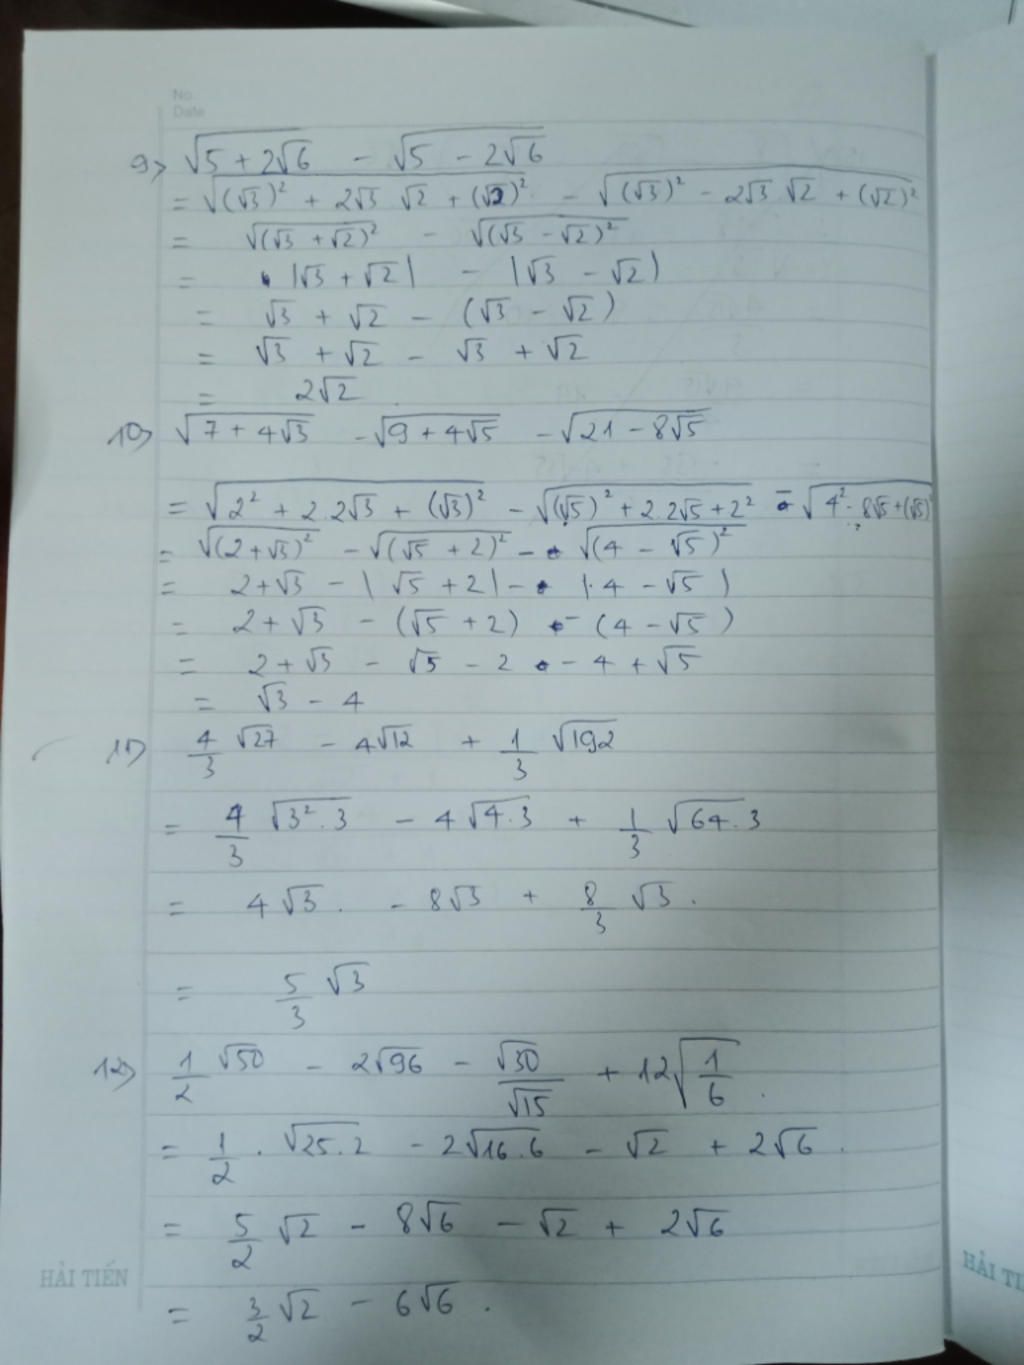 No.
Date
9> √(5 + 2√6) - √(5 - 2√6)
= √((√3)² + 2√3 √2 + (√2)²) - √((√3)² - 2√3 √2 + (√2)²)
= √((√3 + √2)²) - √((√3 - √2)²)
= |√3 + √2| - |√3 - √2|
= √3 + √2 - (√3 - √2)
= √3 + √2 - √3 + √2
= 2√2
10> √(7 + 4√3) - √(9 + 4√5) - √(21 - 8√5)
= √(2² + 2.2√3 + (√3)²) - √((√5)² + 2.2√5 + 2²) - √(4² - 8√5 + (√5)²)
= √((2 + √3)²) - √((√5 + 2)²) - √((4 - √5)²)
= 2 + √3 - |√5 + 2| - |4 - √5|
= 2 + √3 - (√5 + 2) - (4 - √5)
= 2 + √3 - √5 - 2 - 4 + √5
= √3 - 4
11> 4/3 √27 - 4√12 + 1/3 √192
= 4/3 √(3².3) - 4√(4.3) + 1/3 √(64.3)
= 4√3 - 8√3 + 8/3 √3.
= 5/3 √3
12> 1/2 √50 - 2√96 - √30/√15 + 12√(1/6).
= 1/2 . √(25.2) - 2√(16.6) - √2 + 2√6.
= 5/2 √2 - 8√6 - √2 + 2√6
HẢI TIẾN
HẢI TI
= 3/2 √2 - 6√6.